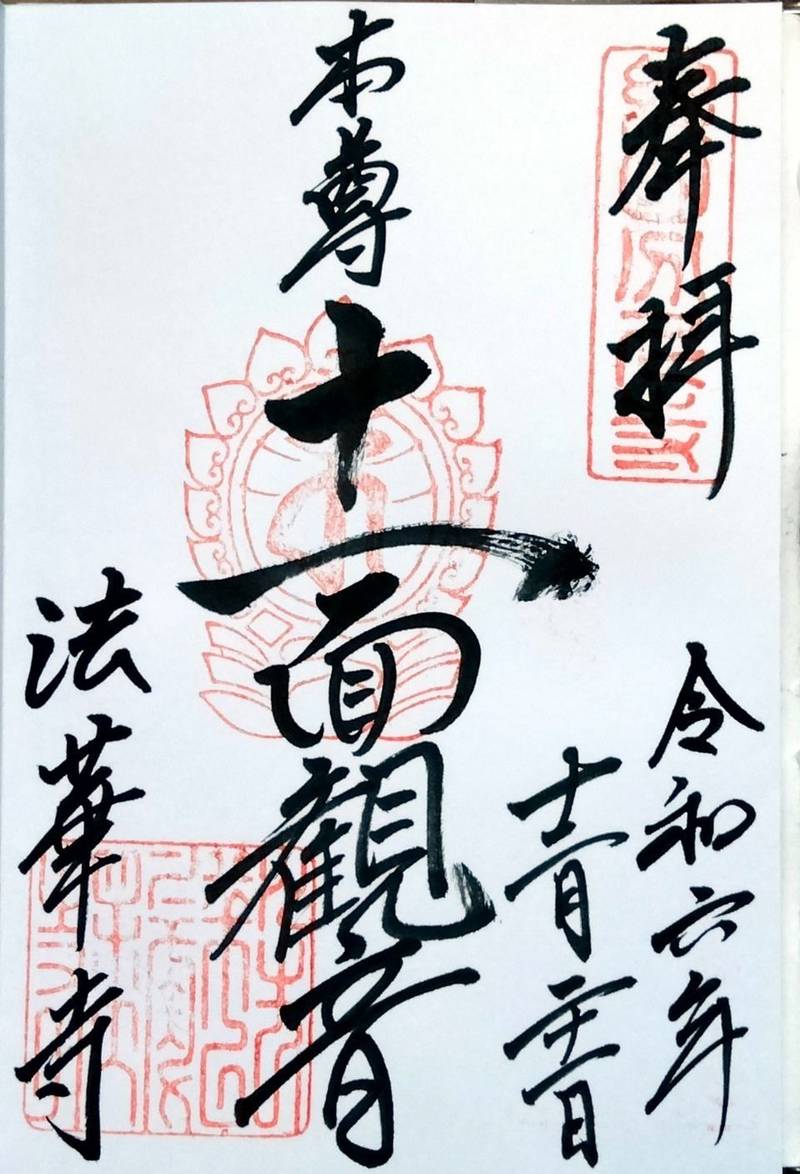 奉拝
令和六年
十二月二十一日
本尊
十一面観音
法華寺